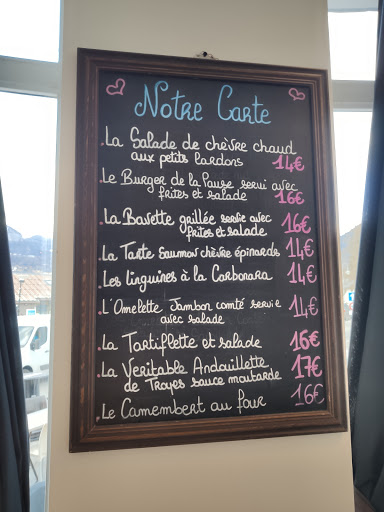 Notre Carte
La Salade de chèvre chaud
aux petits lardons 14€
Le Burger de la Pause servi avec
frites et salade 16€
La Bavette grillée servie avec
frites et salade 16€
La Tarte Saumon chèvre épinards 14€
Les linguines à la Carbonara 14€
L'Omelette Jambon comté servie
avec salade 14€
La Tartiflette et salade 16€
La Véritable Andouillette
de Troyes sauce moutarde 17€
Le Camembert au four 16€